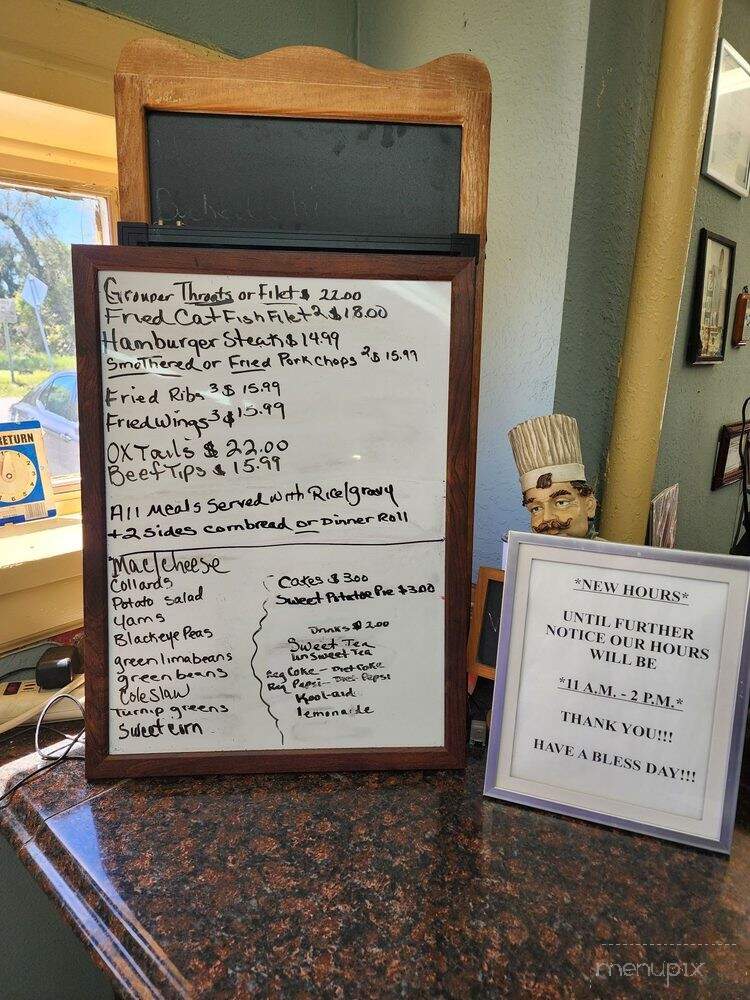 Grouper Throats or Filet $ 22.00
Fried CatFish Filet 2 $18.00
Hamburger Steak $ 14.99
Smothered or Fried Pork Chops 2 $ 15.99
Fried Ribs 3 $ 15.99
Fried Wings 3 $15.99
OxTails $ 22.00
Beef Tips $ 15.99
All Meals Served with Rice/gravy
+ 2 Sides cornbread or Dinner Roll
Mac/cheese
Collards
Potato Salad
Yams
Blackeye Peas
green limabeans
green beans
Coleslaw
Turnip greens
Sweet corn
Cakes $ 3.00
Sweet Potatoe Pie $3.00
Drinks $ 2.00
Sweet Tea
UnSweet Tea
Reg Coke - Diet Coke
Reg Pepsi - Diet Pepsi
Kool-aid
lemonade
RETURN
*NEW HOURS*
UNTIL FURTHER
NOTICE OUR HOURS
WILL BE
*11 A.M. - 2 P.M.*
THANK YOU!!!
HAVE A BLESS DAY!!!
menupix